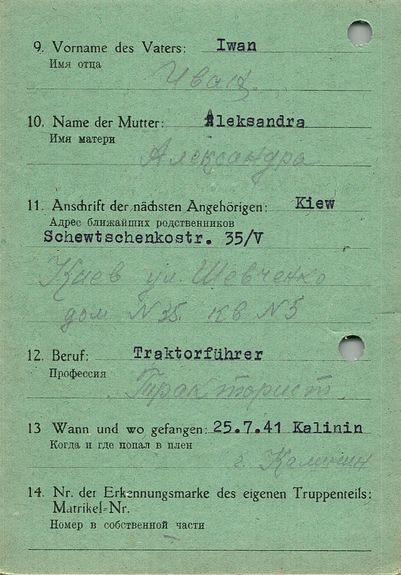 9. Vorname des Vaters: Iwan
Имя отца
Иван.
10. Name der Mutter: Aleksandra
Имя матери
Александра
11. Anschrift der nächsten Angehörigen: Kiew
Адрес ближайших родственников
Schewtschenkostr. 35/V
Киев ул. Шевченко
дом N 35 кв N 5
12. Beruf: Traktorführer
Профессия
Тракторист.
13 Wann und wo gefangen: 25.7.41 Kalinin
Когда и где попал в плен
г. Калинин
14. Nr. der Erkennungsmarke des eigenen Truppenteils:
Matrikel-Nr.
Номер в собственной части